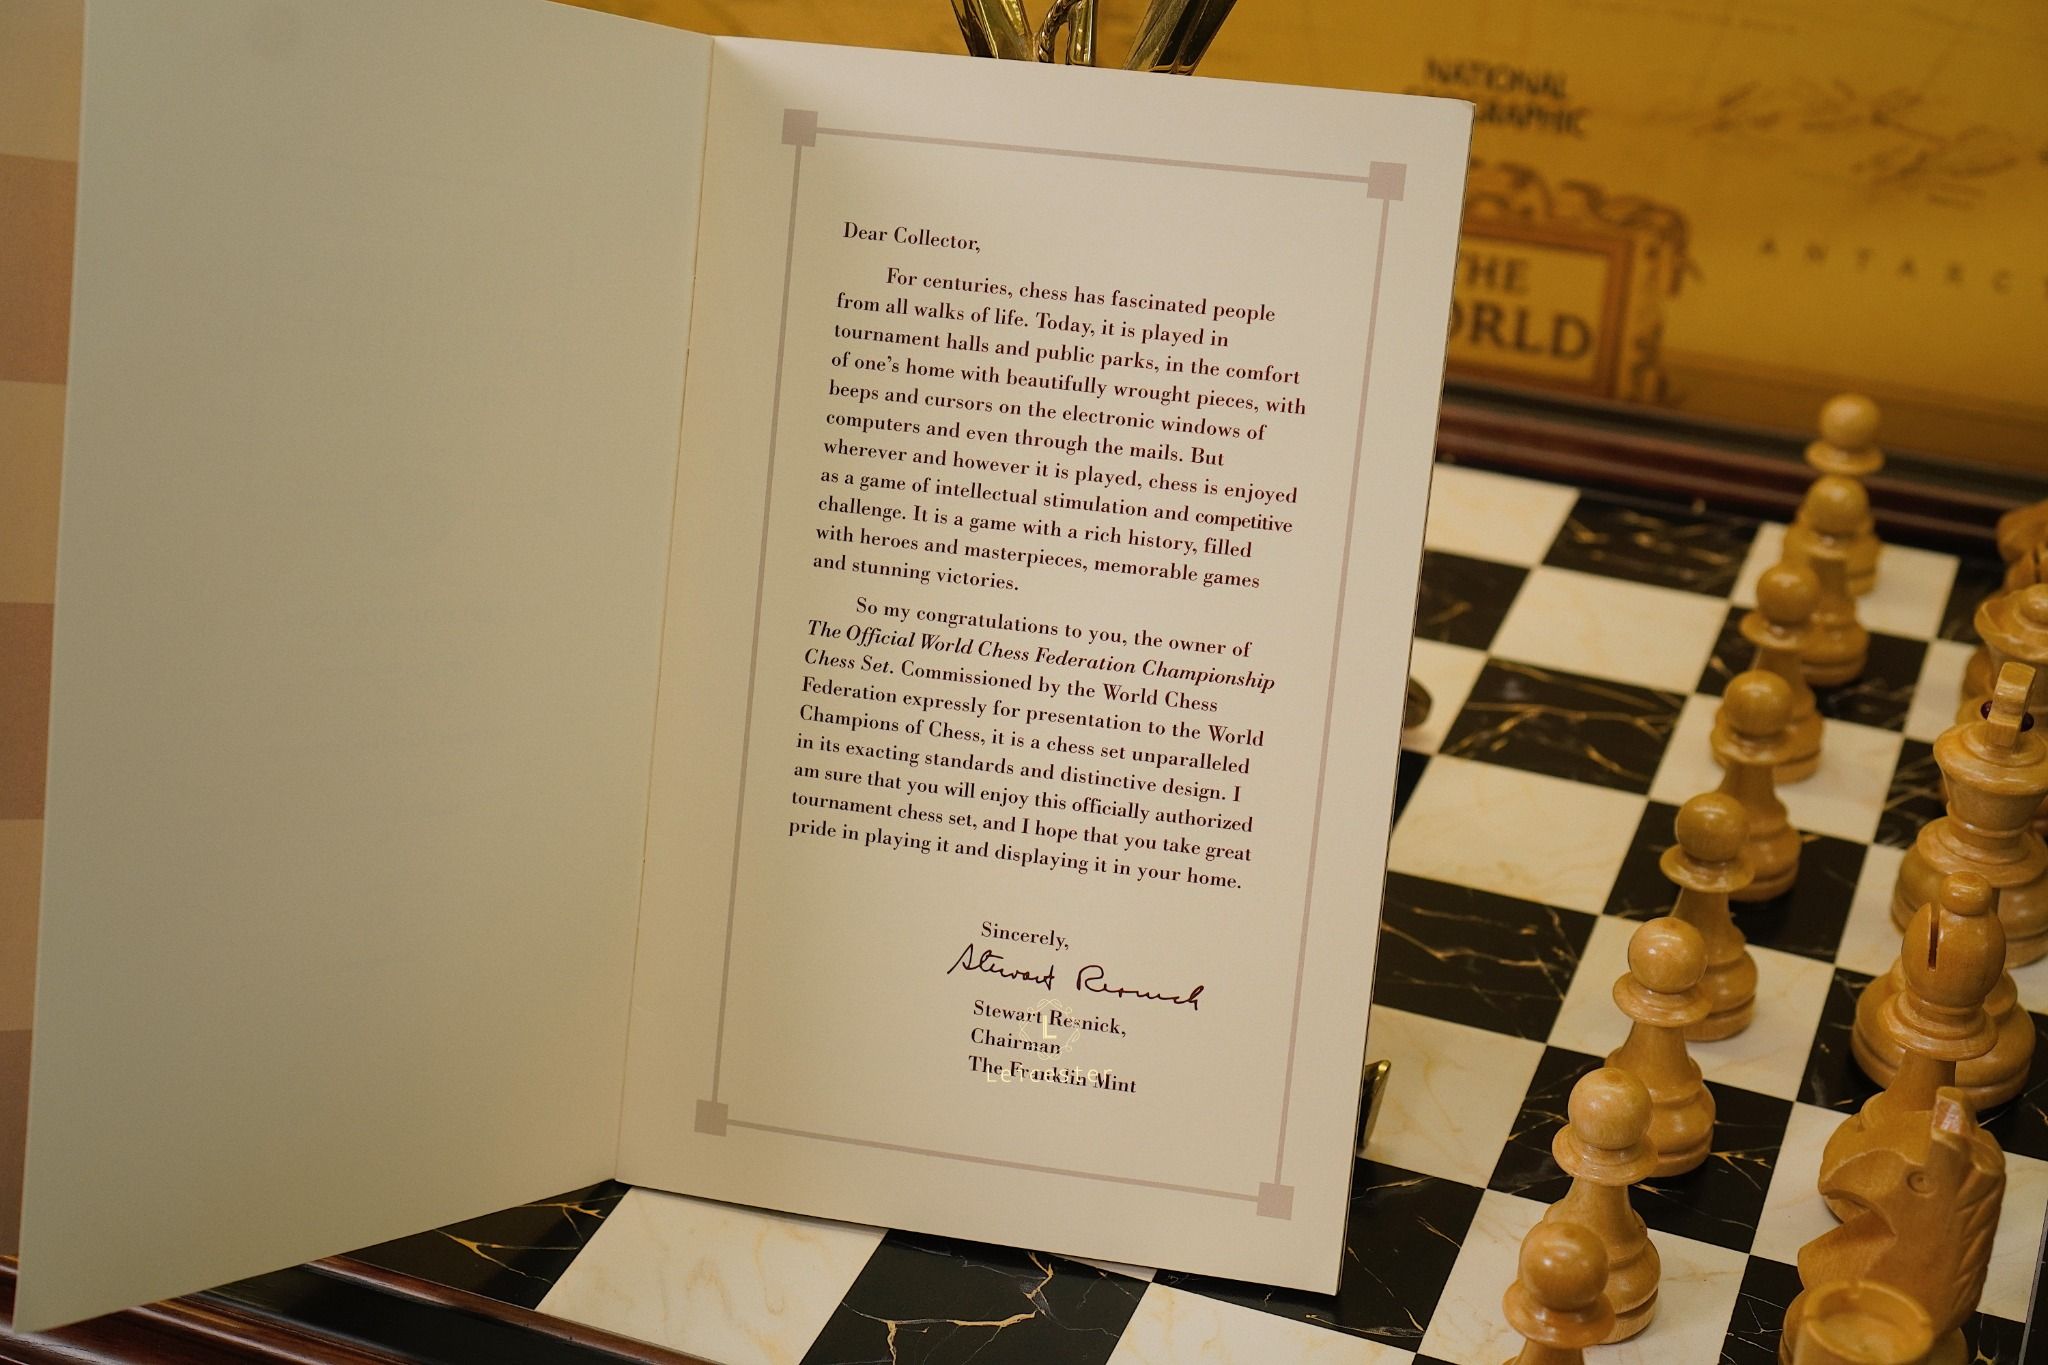 Dear Collector,
For centuries, chess has fascinated people
from all walks of life. Today, it is played in
tournament halls and public parks, in the comfort
of one's home with beautifully wrought pieces, with
beeps and cursors on the electronic windows of
computers and even through the mails. But
wherever and however it is played, chess is enjoyed
as a game of intellectual stimulation and competitive
challenge. It is a game with a rich history, filled
with heroes and masterpieces, memorable games
and stunning victories.
So my congratulations to you, the owner of
The Official World Chess Federation Championship
Chess Set. Commissioned by the World Chess
Federation expressly for presentation to the World
Champions of Chess, it is a chess set unparalleled
in its exacting standards and distinctive design. I
am sure that you will enjoy this officially authorized
tournament chess set, and I hope that you take great
pride in playing it and displaying it in your home.
Sincerely,
Stewart Resnick
Stewart Resnick,
Chairman
The Franklin Mint
L
Leicester
NATIONAL
GRAPHIC
THE
ORLD
ANTARC